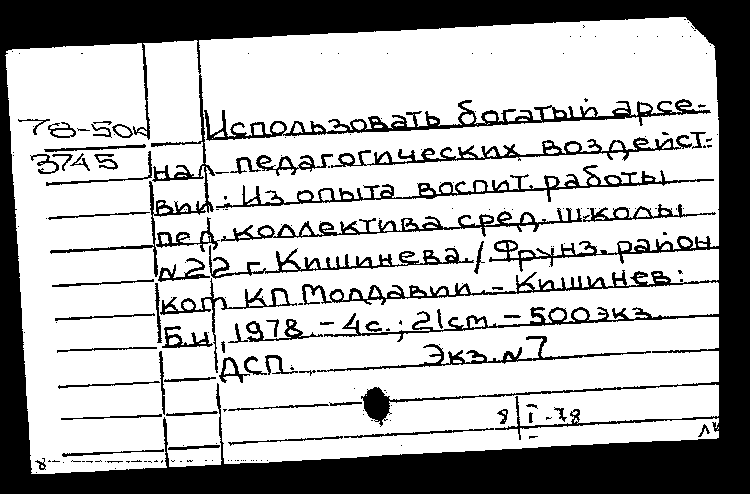 78-50к Использовать богатый арсе-
3745 нал педагогических воздейст-
вий: Из опыта воспит. работы
пед. коллектива сред. школы
№22 г. Кишинева. / Фрунз. район
ком КП Молдавии. - Кишинев:
Б.и, 1978. - 4с.; 21см. - 500экз.
ДСП. Экз. №7
8 I-78